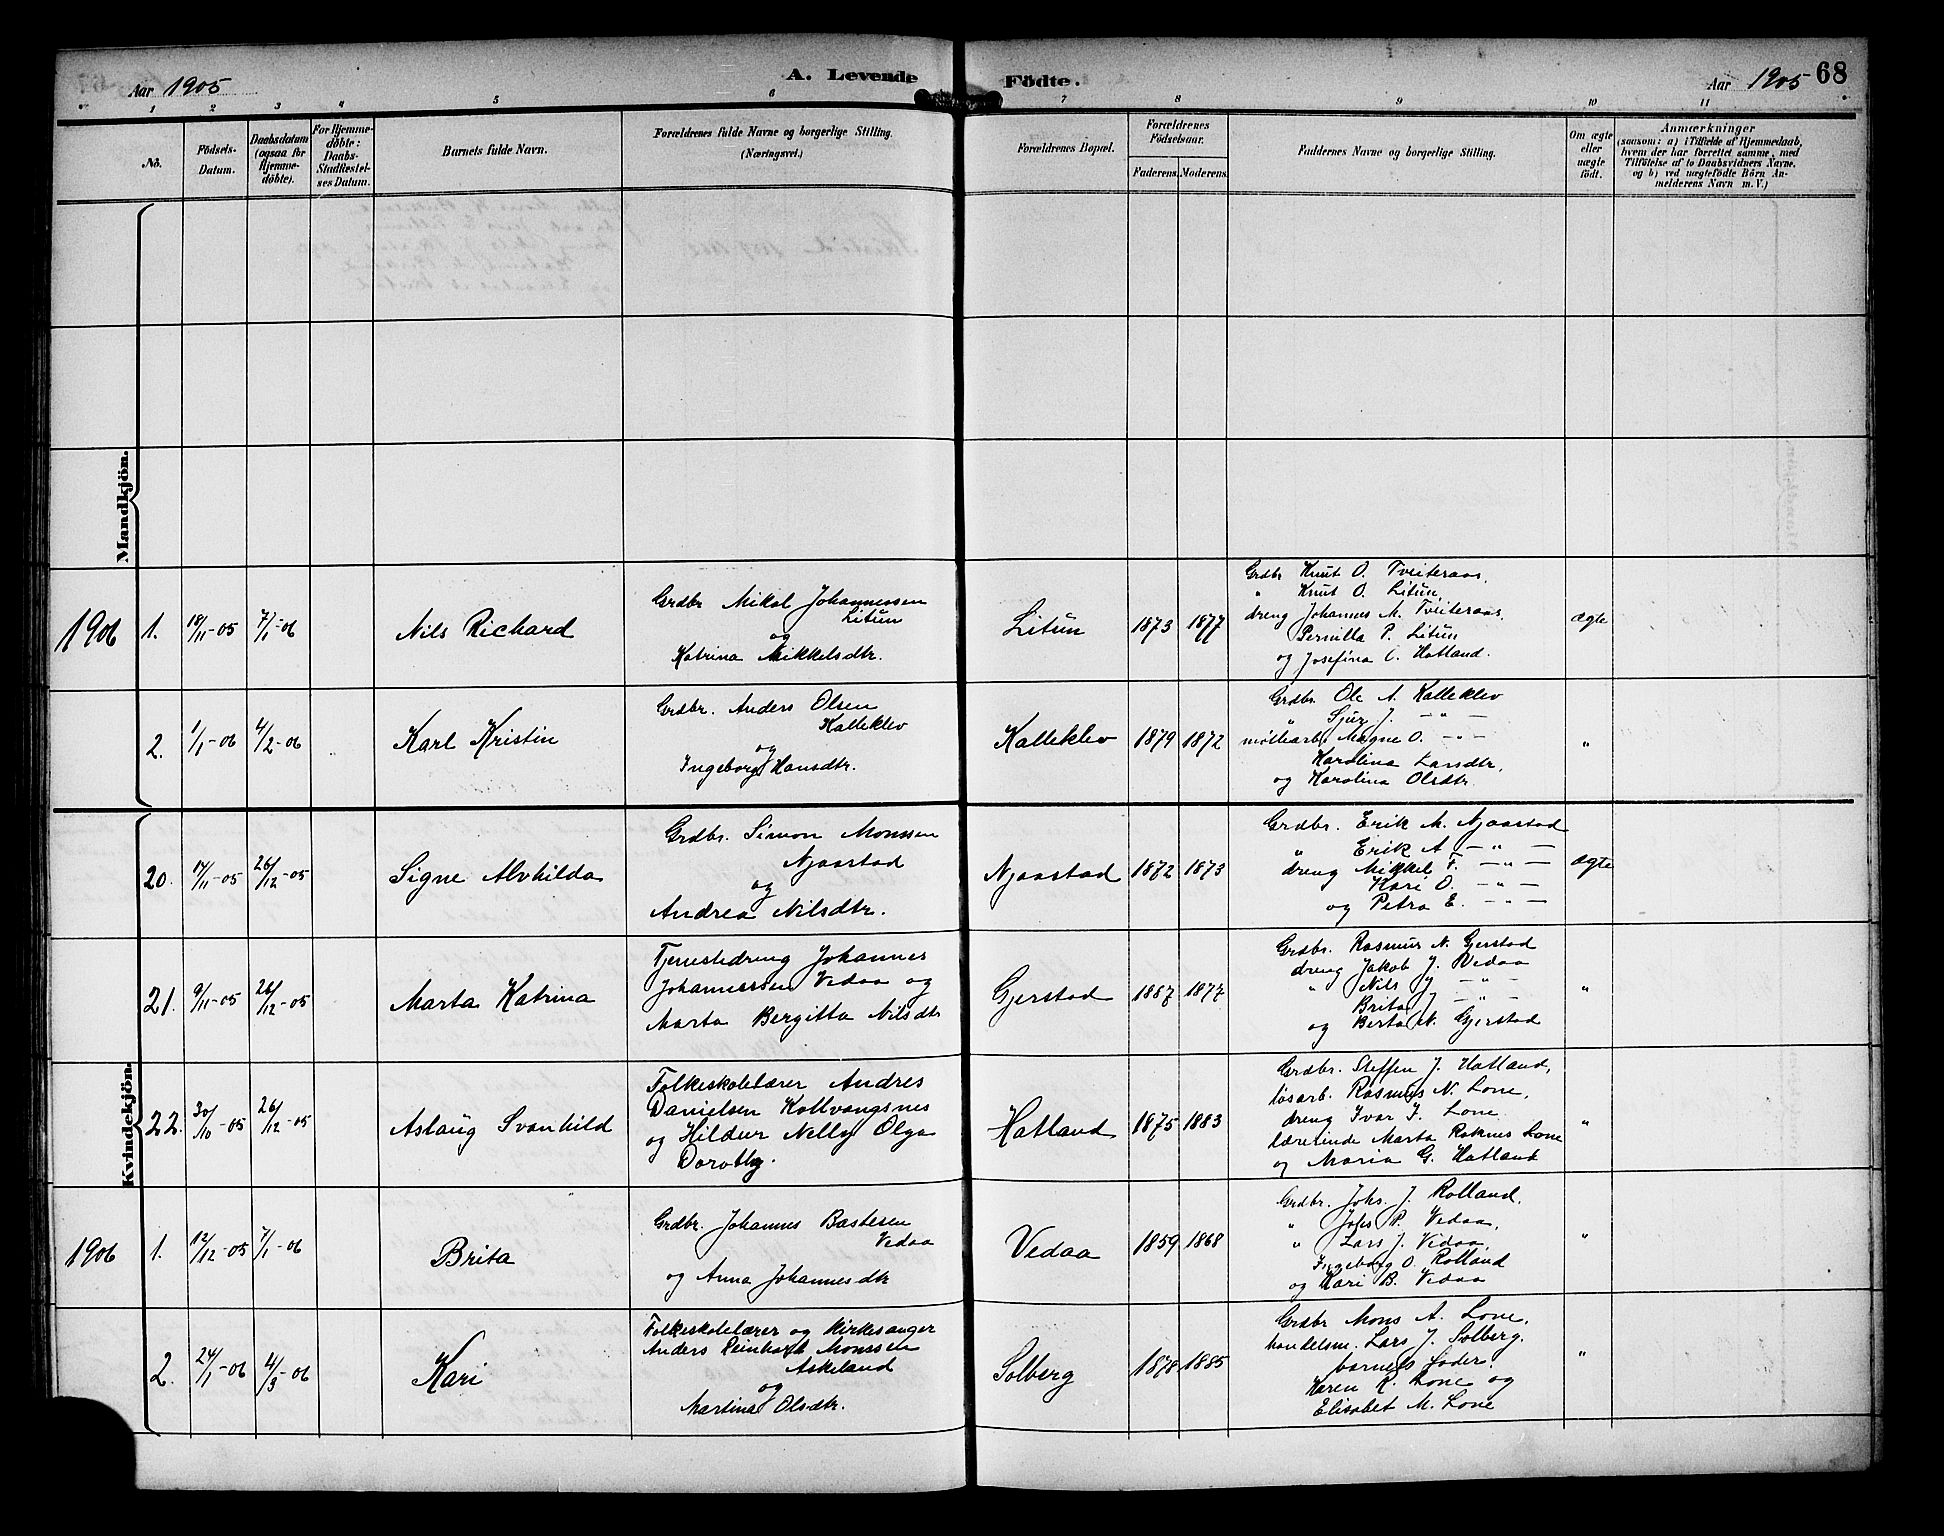 Aar 1905
A. Levende Födte.
Aar 1905 68
1 2 3 4 5 6 7 8 9 10 11
No.
Födsels-Datum.
Daabsdatum (ogsaa for Hjemme-döbte).
For Hjemme-döbte: Daabs-Stadfæstel-ses Datum.
Barnets fulde Navn.
Forældrenes fulde Navne og borgerlige Stilling. (Næringsvei.)
Forældrenes Bopæl.
Forældrenes Födselsaar.
Faderens. Moderens.
Faddernes Navne og borgerlige Stilling.
Om ægte eller uægte födt.
Anmærkninger
(saasom: a) i Tilfælde af Hjemmedaab,
hvem der har forrettet samme, med
Tilföielse af to Daabsvidners Navne,
og b) ved uægtefödte Börn An-
melderens Navn m. V.)
Mandkjön.
1906 1. 18/11-05 7/1-06 Nils Richard
Grdbr Mikal Johannessen
Litun
og
Katrina Mikkelsdtr.
Litun 1873 1877
Grdbr Knut O. Tveiteraas,
" Knut O. Litun,
dreng Johannes M. Tveiteraas,
Pernilla P. Litun
og Josefina O. Hatland.
ægte
2. 1/1-06 4/2-06 Karl Kristin
Grdbr. Anders Olsen
Kalleklev
og
Ingeborg Hansdtr.
Kalleklev 1879 1872
Grdbr. Ole A. Kalleklev
" Sjur J. — " —
møllearb. Magne O. — " —
Karolina Larsdtr,
og Karolina Olsdtr.
"
Kvindekjön.
20. 17/11-05 26/12-05 Signe Alvhilda
Grdbr. Simon Monssen
Njaastad
og
Andrea Nilsdtr.
Njaastad 1872 1873
Grdbr. Erik M. Njaastad
" Erik A — " —
dreng Mikkel F. — " —
Kari O. — " —
og Petra E. — " —
ægte
21. 9/11-05 26/12-05 Marta Katrina
Tjenestedreng Johannes
Johannessen Vedaa og
Marta Bergitta Nilsdtr
Gjerstad 1887 1877
Grdbr. Rasmus N. Gjerstad
dreng Jakob J. Vedaa
" Nils J — " —
Brita J — " —
og Berta N. Gjerstad
"
22. 30/10-05 26/12-05 Aslaug Svanhild
Folkeskolelærer Andres
Danielsen Kollvangsnes
og Hildur Nelly Olga
Dorothy.
Hatland 1875 1883
Grdbr. Steffen J. Hatland,
løsarb. Rasmus N. Lone,
dreng Ivar I. Lone
lærerinde Marta Raknes Lone
og Maria G. Hatland
"
1906 1. 12/12-05 7/1-06 Brita
Grdbr. Johannes Bastesen
Vedaa
og Anna Johannesdtr
Vedaa 1859 1868
Grdbr. Johs. J. Rolland,
" Johs P. Vedaa,
" Lars J. Vedaa,
Ingeborg O. Rolland
og Kari B. Vedaa
"
2. 24/1-06 4/3-06 Kari
Folkeskolelærer og kirkesanger
Anders Reinhardt Monssen
Askeland
og
Martina Olsdtr.
Solberg 1878 1885
Grdbr Mons A. Lone,
handelsm. Lars J. Solberg,
barnets fader.
Karen R. Lone og
Elisabet M. Lone
"